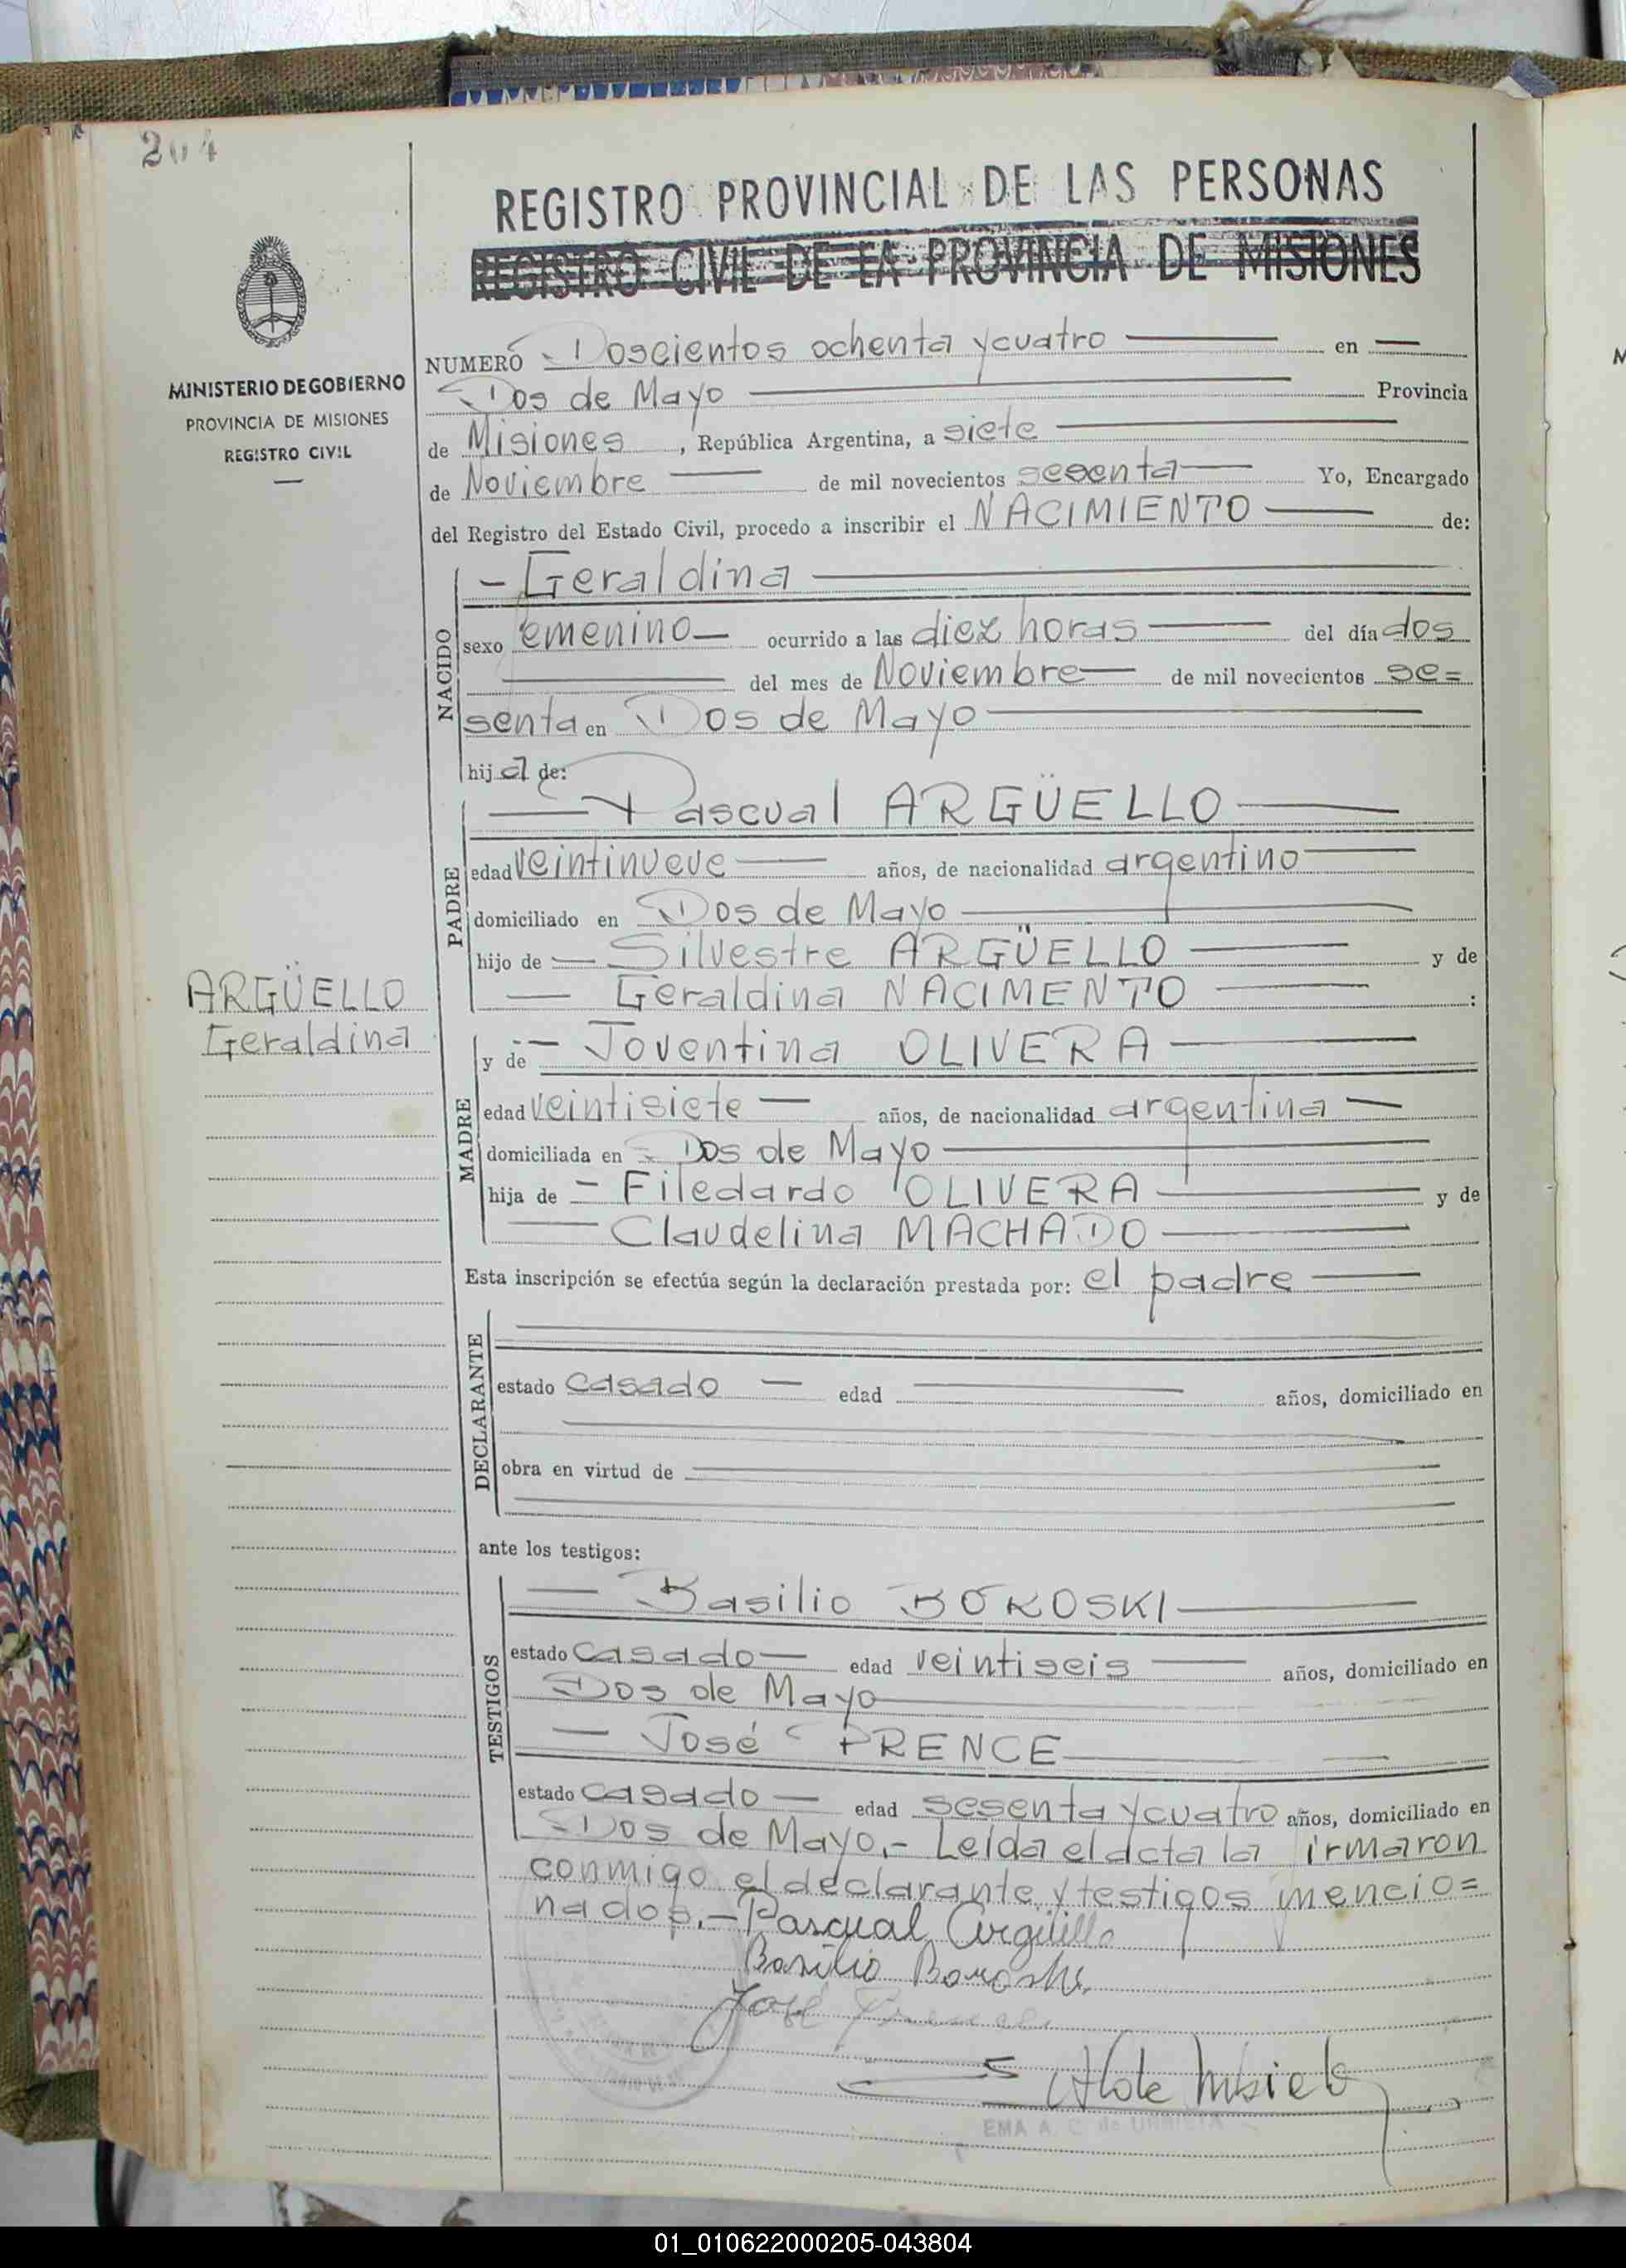 204
REGISTRO PROVINCIAL DE LAS PERSONAS
REGISTRO CIVIL DE LA PROVINCIA DE MISIONES
MINISTERIO DE GOBIERNO
PROVINCIA DE MISIONES
REGISTRO CIVIL
NUMERO Doscientos ochenta y cuatro en
Dos de Mayo Provincia
de Misiones, República Argentina, a siete
de Noviembre de mil novecientos sesenta Yo, Encargado
del Registro del Estado Civil, procedo a inscribir el NACIMIENTO de:
NACIDO
- Geraldina
sexo femenino ocurrido a las diez horas del día dos
del mes de Noviembre de mil novecientos se=
senta en Dos de Mayo
hija de:
PADRE
Pascual ARGÜELLO
edad veintinueve años, de nacionalidad argentino
domiciliado en Dos de Mayo
hijo de Silvestre ARGÜELLO y de
Geraldina NACIMENTO :
ARGÜELLO
Geraldina
MADRE
y de - Joventina OLIVERA
edad veintisiete años, de nacionalidad argentina
domiciliada en Dos de Mayo
hija de - Filedardo OLIVERA y de
Claudelina MACHADO
Esta inscripción se efectúa según la declaración prestada por: el padre
DECLARANTE
estado casado edad años, domiciliado en
obra en virtud de
ante los testigos:
TESTIGOS
Basilio BOROSKI
estado casado edad veintiseis años, domiciliado en
Dos de Mayo
José PRENCE
estado casado edad sesenta y cuatro años, domiciliado en
Dos de Mayo.- Leída el acta la firmaron
conmigo el declarante y testigos mencio=
nados.- Pascual Argüello
Basilio Boroski
José
EMA A. C. de
01_010622000205-043804